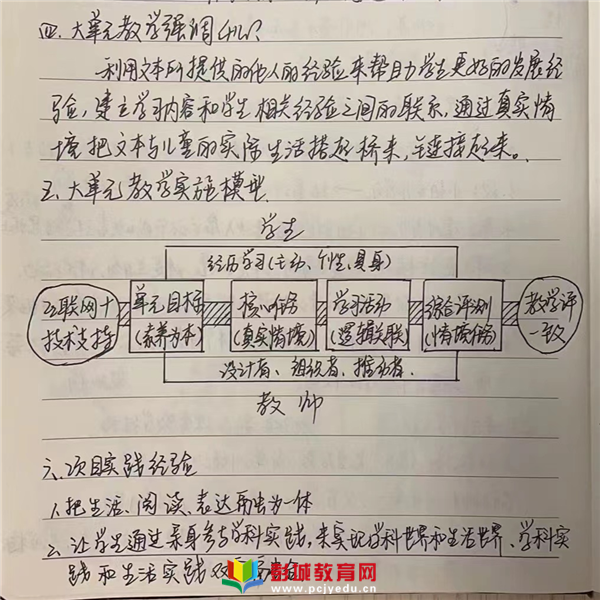 四、大单元教学强调什么?
利用文本所提供的他人的经验来帮助学生更好的发展经
验,建立学习内容和学生相关经验之间的联系,通过真实情
境把文本与儿童的实际生活搭起桥来,链接起来。
五、大单元教学实施模型.
学生
经历学习(主动、个性、具身)
互联网+
技术支持
单元目标
(素养为本)
核心任务
(真实情境)
学习活动
(逻辑关联)
综合评测
(情境任务)
教学评
一致
设计者、组织者、推动者.
教师
六、项目实践经验
1、把生活、阅读、表达融为一体
2、让学生通过亲身参与学科实践,来实现学科世界和生活世界、学科实
践和生活实践
彭城教育网
www.pcjyedu.cn